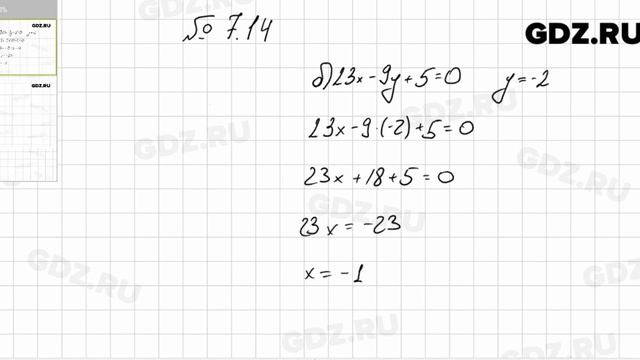 № 7.14
GDZ.RU
б) 23x - 9y + 5 = 0 y = -2
23x - 9·(-2) + 5 = 0
23x + 18 + 5 = 0
23x = -23
x = -1
GDZ.RU
GDZ.RU
GDZ.RU
GDZ.RU
GDZ.RU
GDZ.RU
GDZ.RU
GDZ.RU